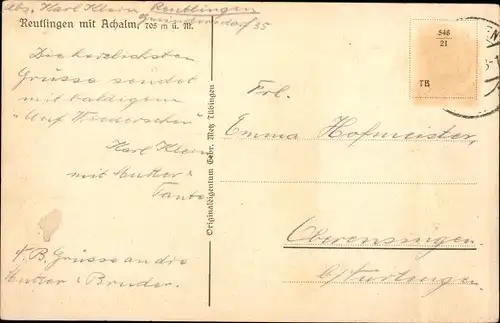 Abs. Karl Klein, Reutlingen
Gmindersdorf 35
Reutlingen mit Achalm, 705 m ü. M.
Die herzlichsten
Grüsse sendet
mit baldigem
"Auf Wiedersehen"
Karl Klein
mit Mutter &
Tante
N.B. Grüsse an die
Mutter & Bruder.
Originaleigentum Gebr. Metz Tübingen
546
21
TB
EN
Frl.
Emma Hofmeister,
Oberensingen
b/Nürtingen.